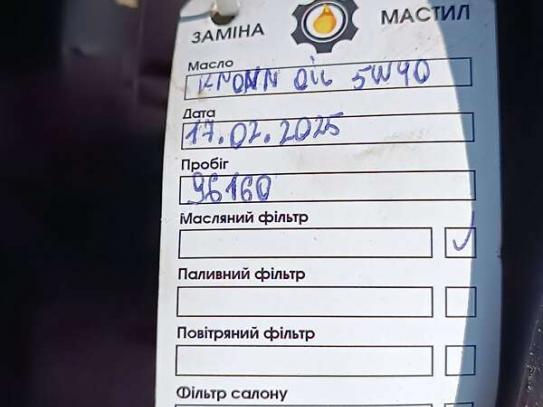 ЗАМІНА МАСТИЛ
Масло
KNOWN OIL 5W40
Дата
17.02.2025
Пробіг
96160
Масляний фільтр
Паливний фільтр
Повітряний фільтр
Фільтр салону